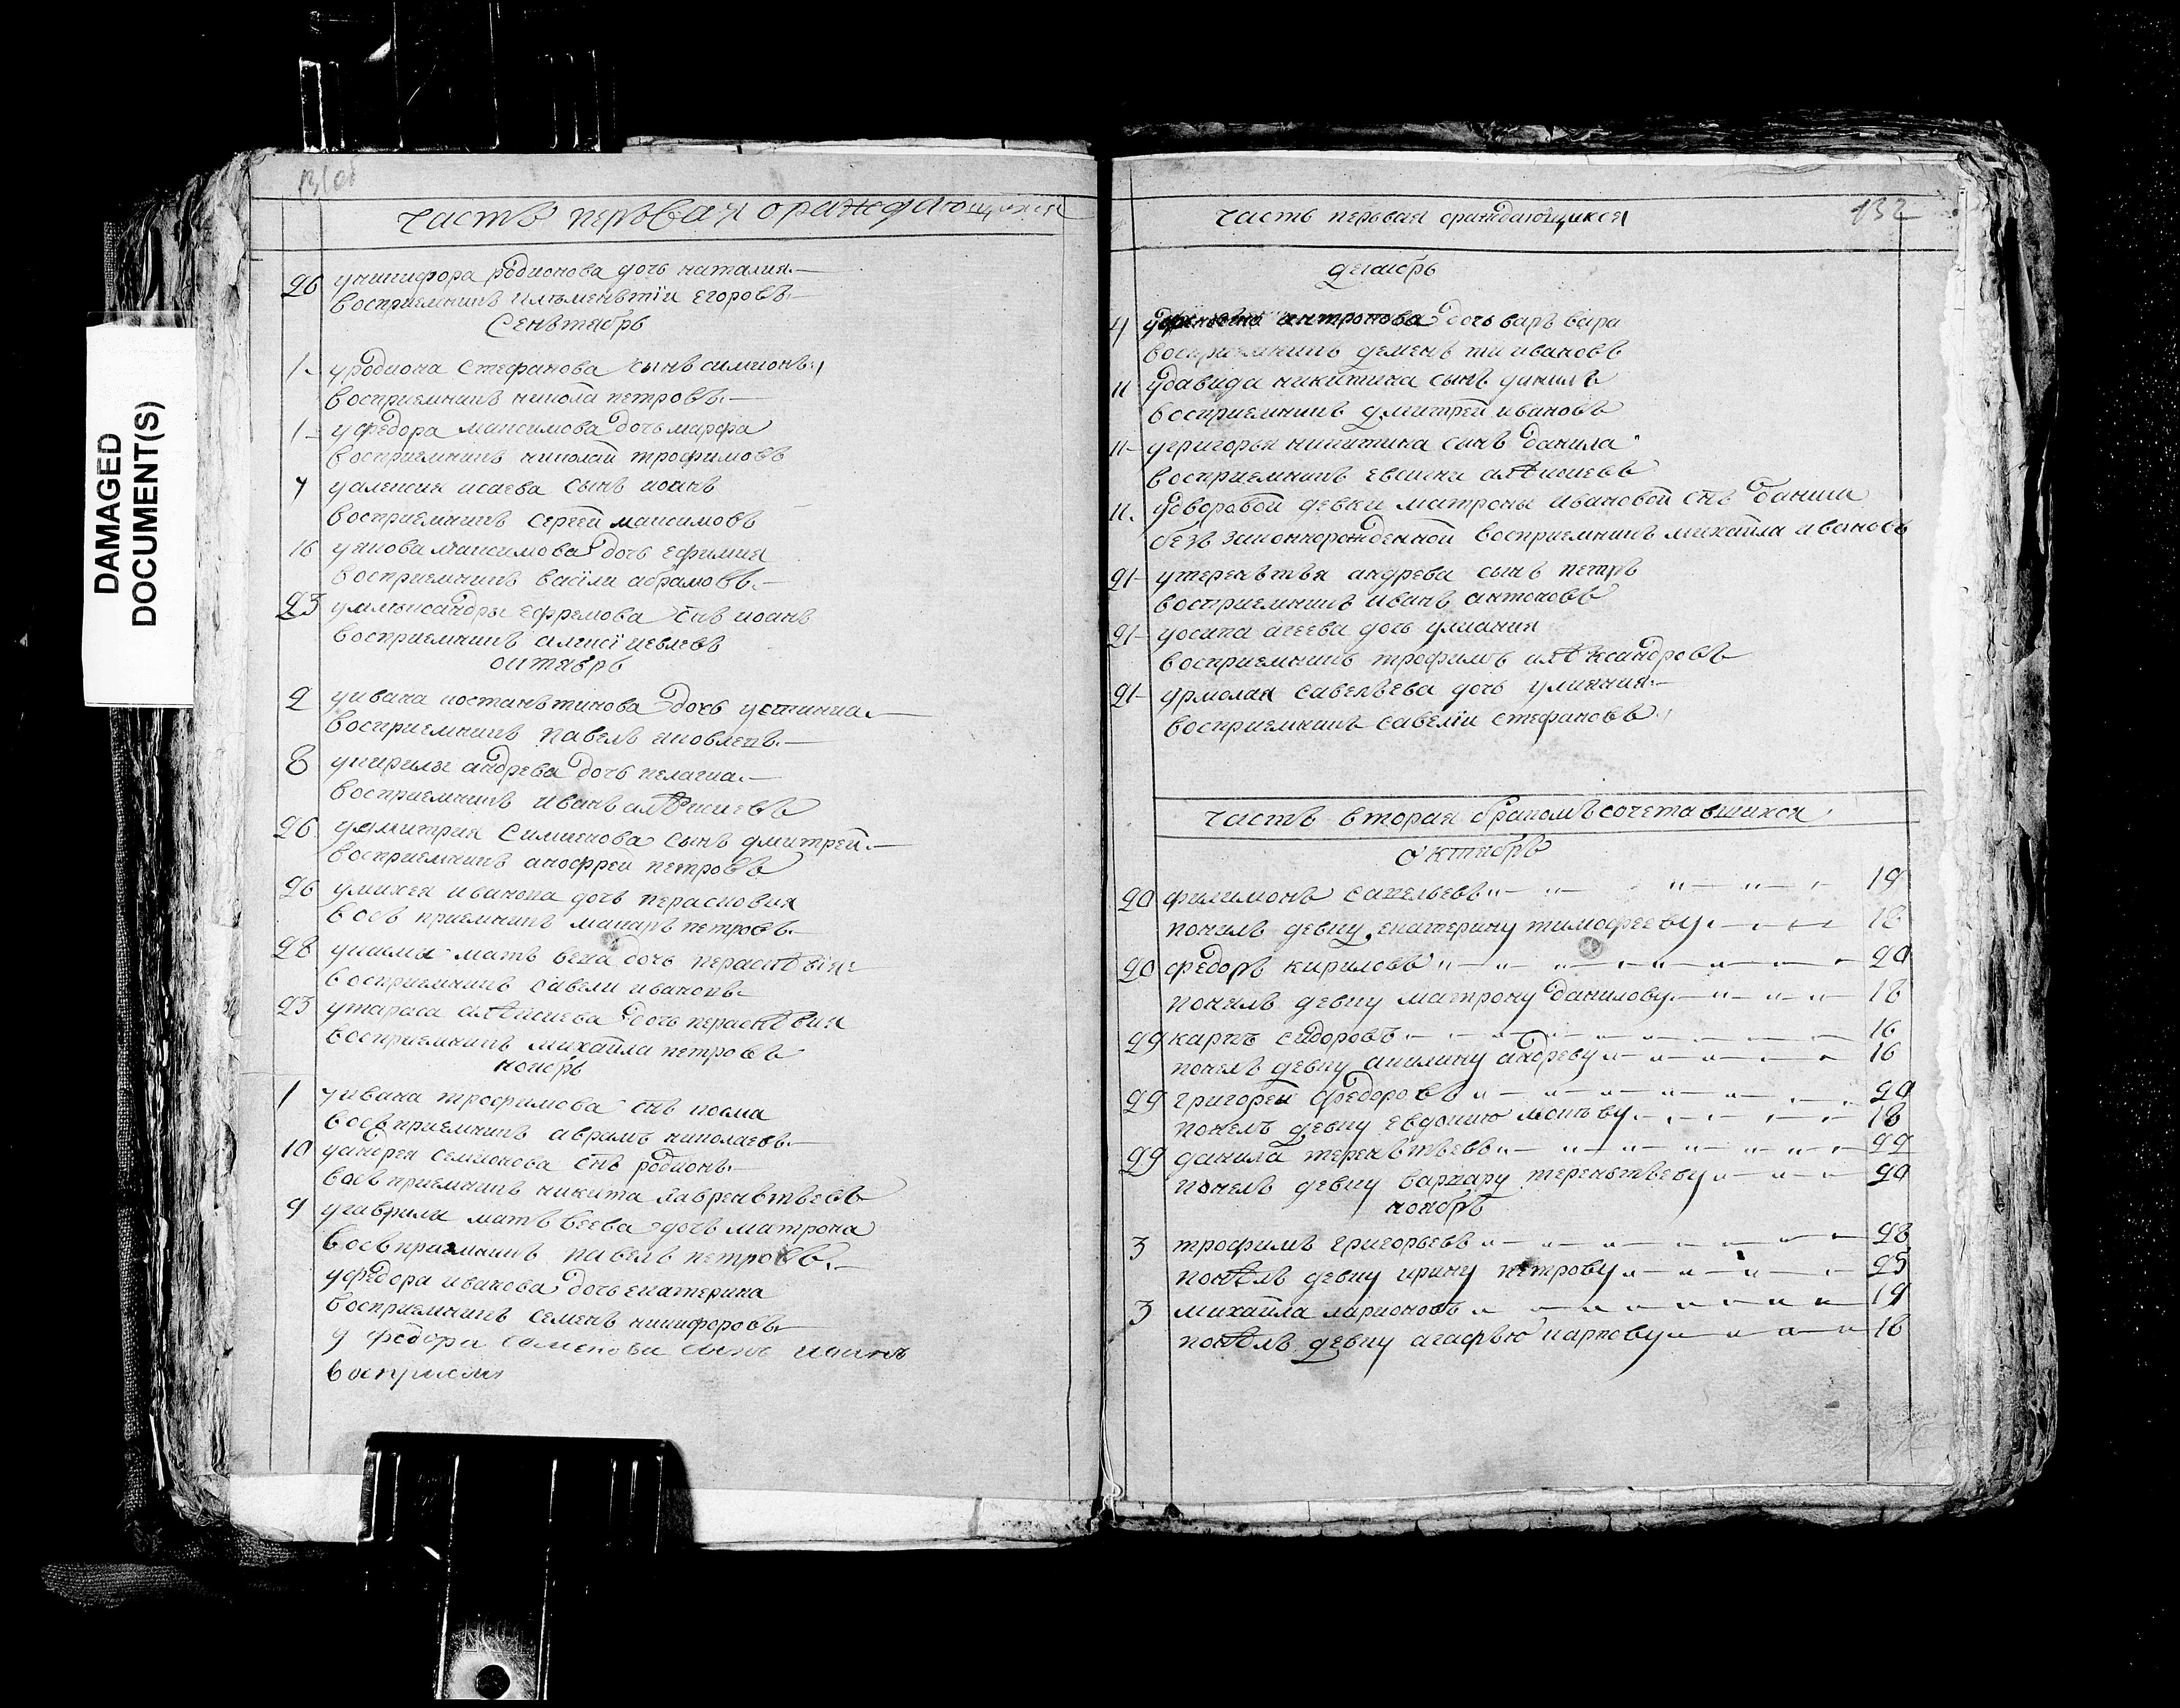 DAMAGED
DOCUMENT(S)
часть перьвая ораждающихся
26 уникифора родионова дочь наталия
восприемникъ клименьтїи егоровъ
Сеньтябрь
1 уродиона стефанова сынъ симионъ
восприемникъ никола петровъ
1 уфедора максимова дочь марфа
восприемникъ николай трофимовъ
7 уалексия исаева сынъ иоанъ
восприемникъ сергей максимовъ
16 уякова максимова дочь ефимия
восприемникъ васїли абрамовъ
23 ефремова снъ иоанъ
восприемникъ алексї иевлевъ
октябрь
2 уивана костаньтинова дочь устиниа
восприемникъ павелъ яковлевъ
8 укирилы андрева дочь пелагиа
восприемникъ иванъ алѣксиевъ
26 удмитрия симионова сынъ дмитрей
восприемникъ анофреи петровъ
26 умихея иванова дочь перасковия
восъприемникъ макаръ петровъ
28 укосмы матьвева дочь пераскѣвия
восприемникъ савели ивановъ
23 утараса алѣксиева дочь пераскѣвия
восприемникъ михайла петровъ
ноябрь
1 уивана трофимова снъ косма
восъприемникъ аврамъ николаевъ
10 уандрея семионова снъ родионъ
восъприемникъ никита лавреньтьевъ
9 угаврила матьвеева дочь матрона
восъприемникъ павелъ петровъ
уфедора иванова дочь екатерина
восприемникъ семенъ никифоровъ
у федора семенова сынъ иоанъ
восприем
132
часть первая ораждающихся
декабрь
4 антропова дочь варъвара
восприемникъ деменьти ивановъ
11 удавида никитина сынъ данилъ
восприемникъ дмитрей ивановъ
11 угригорья никитина сынъ данила
восприемникъ евсикеи алѣксиевъ
11 удворовой девки матроны ивановой снъ данила
безъ законнорожденной восприемникъ михайла ивановъ
21 утереньтья андрева сынъ петръ
восприемникъ иванъ антоновъ
21 уосипа агеева дочь улиания
восприемникъ трофимъ алѣксандровъ
21 урмолая савельева дочь улияния
восприемникъ савелїи стефановъ
часть вторая бракомъ сочетавшихся
октябрь
20 филимонъ савельевъ 19
понялъ девку екатерину тимофееву 18
20 федоръ кириловъ 20
понялъ девку матрону данилову 18
29 карпъ сидоровъ 16
понелъ девку акилину андреву 16
29 григорей федоровъ 20
понелъ девку евдокию 18
29 данила тереньтьевъ 22
понелъ девку варвару тереньтьеву 20
ноябрь
3 трофимъ григорьевъ 28
понѣлъ девку ирину петрову 25
3 михайла ларионовъ 19
понѣлъ девку агафью карпову 18